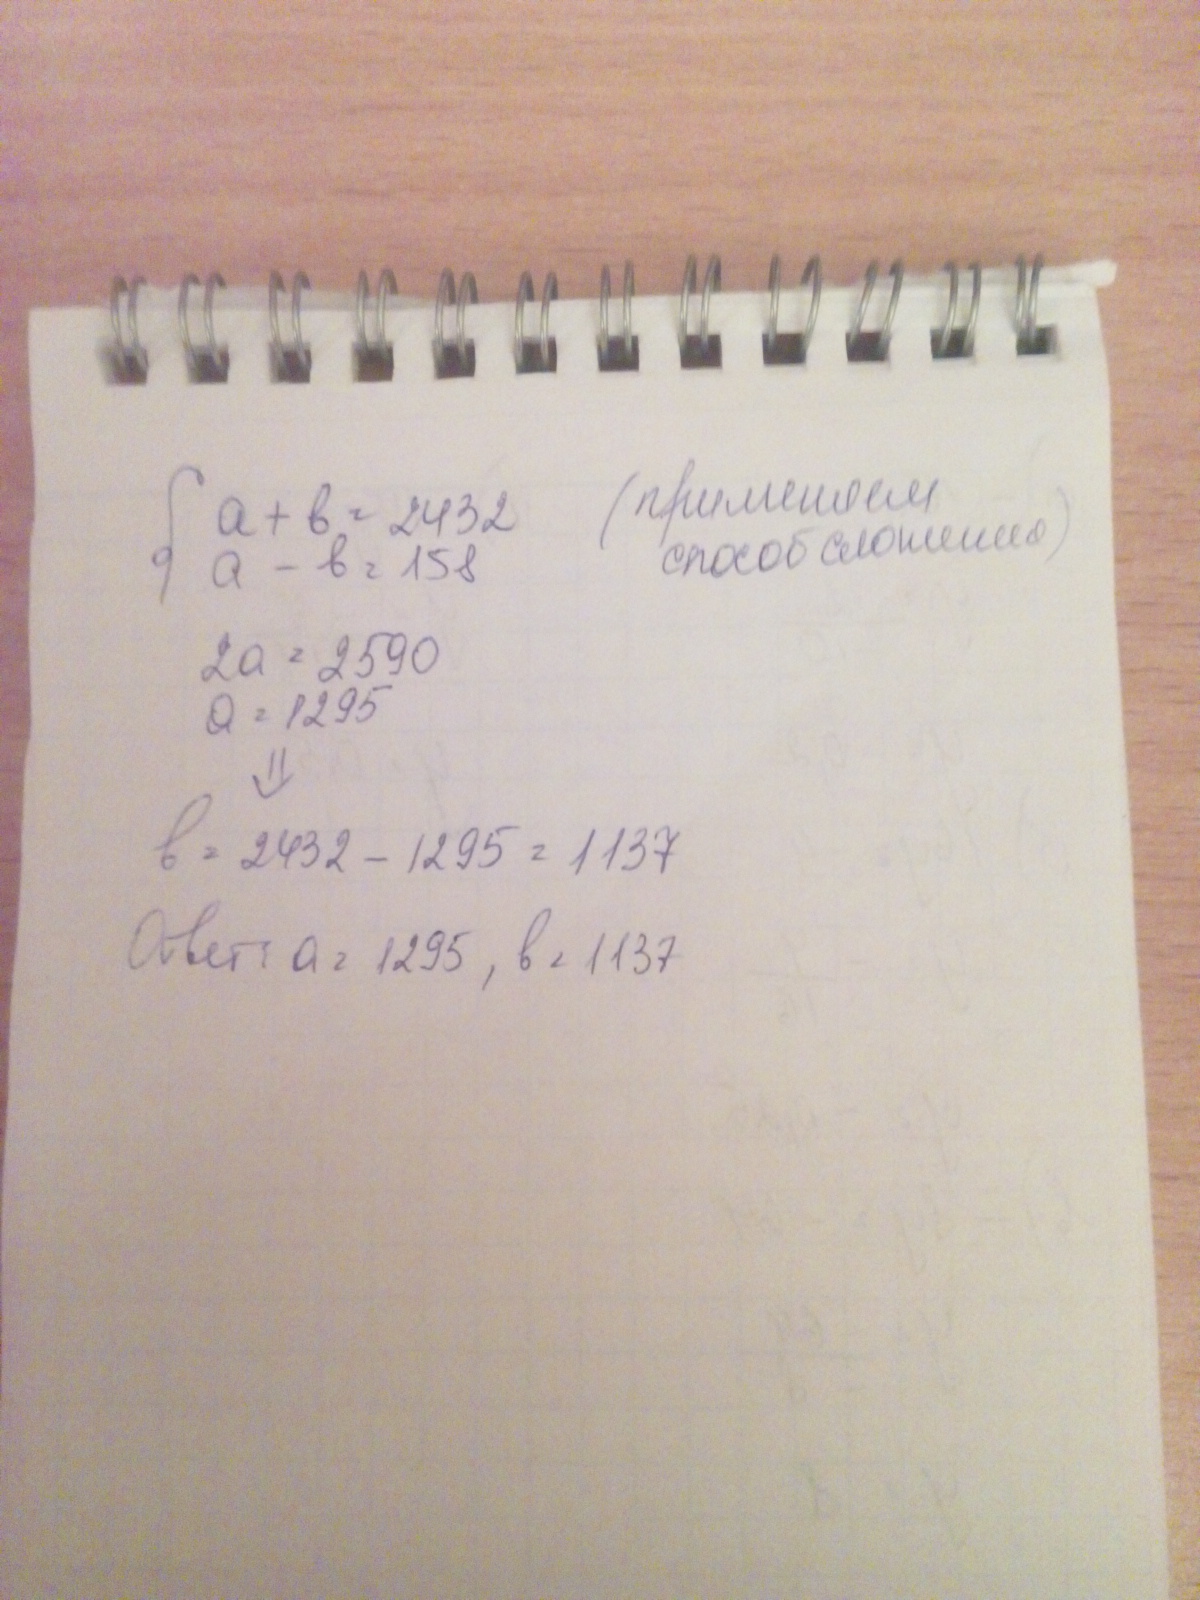 a + b = 2432 (применяем
a - b = 158 способ сложения)
2a = 2590
a = 1295
⇓
b = 2432 - 1295 = 1137
Ответ: a = 1295, b = 1137